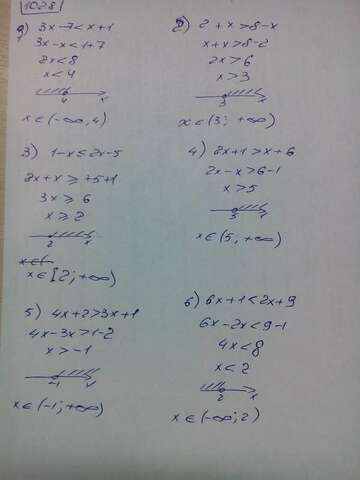 1028
1) 3x-7<x+1
3x-x<1+7
2x<8
x<4
4 x
x∈(-∞,4)
2) 2+x>8-x
x+x>8-2
2x>6
x>3
3 x
x∈(3; +∞)
3) 1-x≤2x-5
2x+x≥+5+1
3x≥6
x≥2
2 x
x∈[2;+∞)
4) 2x+1>x+6
2x-x>6-1
x>5
3 x
x∈(5;+∞)
5) 4x+2>3x+1
4x-3x>1-2
x>-1
-1 x
x∈(-1;+∞)
6) 6x+1<2x+9
6x-2x<9-1
4x<8
x<2
2 x
x∈(-∞;2)